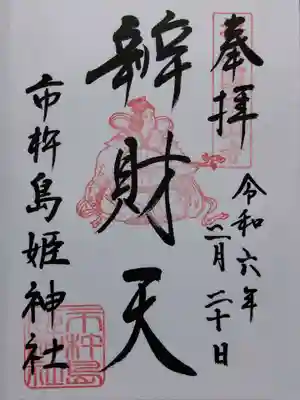 奉拝
令和六年
二月二十日
辨財天
市杵島姫神社
市杵島